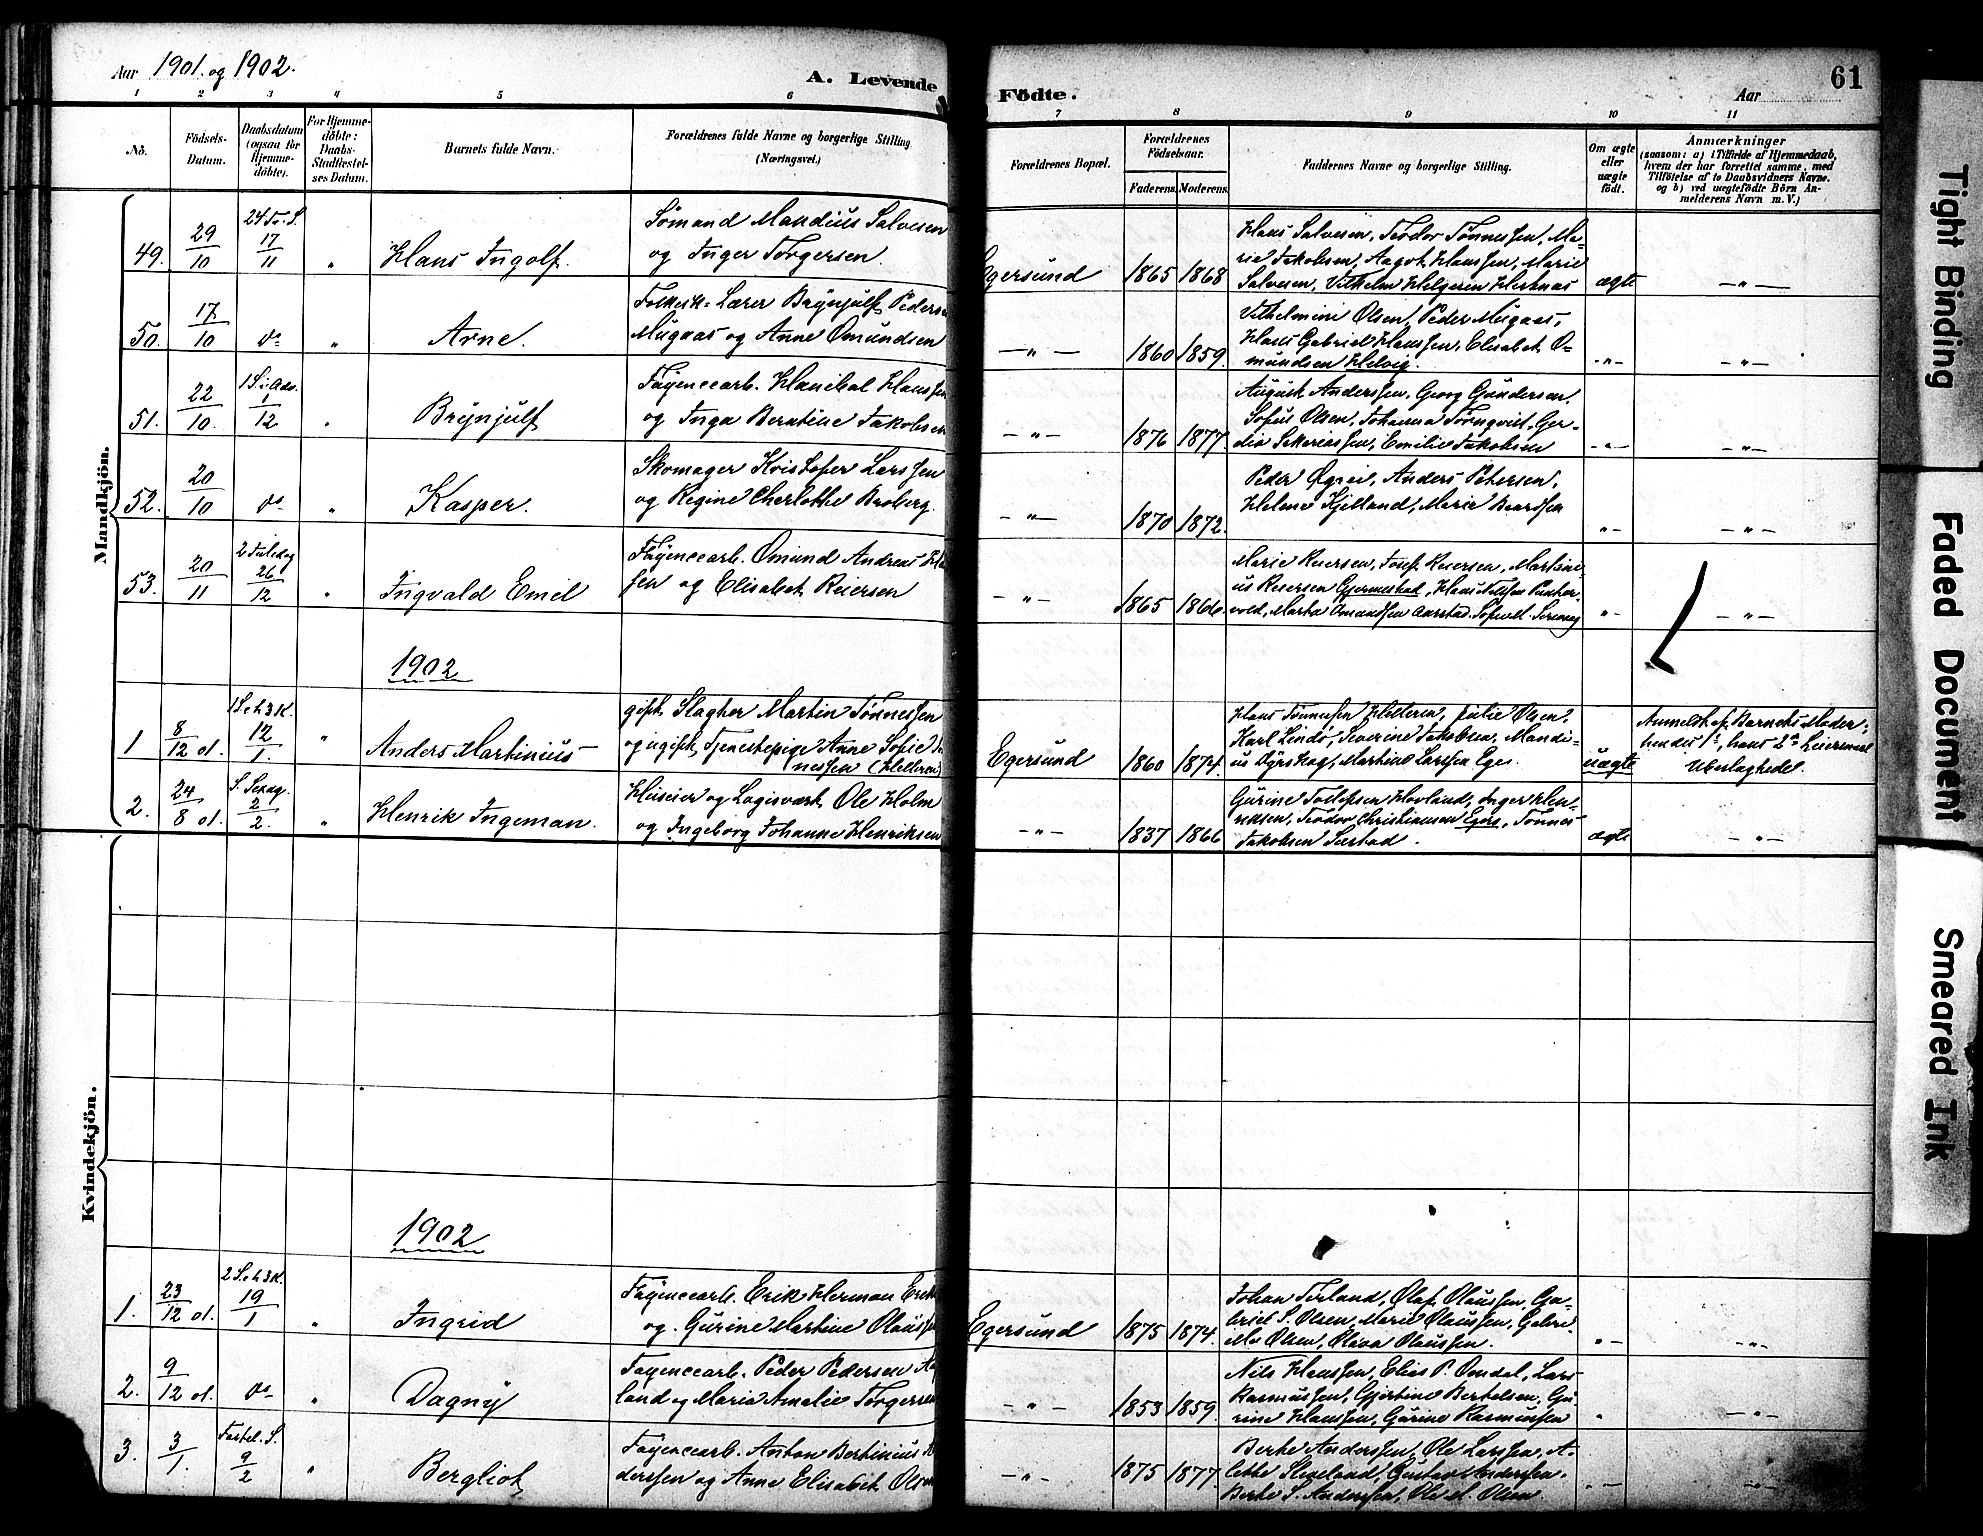 Aar 1901. og 1902.
A. Levende Födte.
Aar
61
1 2 3 4 5 6 7 8 9 10 11
No.
Födsels-Datum.
Daabsdatum (ogsaa for Hjemme-döbte).
For Hjemme-döbte: Daabs-Stadfæstel-ses Datum.
Barnets fulde Navn.
Forældrenes fulde Navne og borgerlige Stilling (Næringsvei.)
Forældrenes Bopæl.
Forældrenes Födselsaar.
Faderens. Moderens.
Faddernes Navne og borgerlige Stilling.
Om ægte eller uægte födt.
Anmærkninger
(saasom: a) i Tilfælde af Hjemmedaab,
hvem der har forrettet samme, med
Tilföielse af to Daabsvidners Navne.
og b) ved uægtefödte Börn An-
melderens Navn m. V.)
Mandkjön.
49. 29/10 24 S. 17/11 " Hans Ingolf. Sømand Mandius Salvesen
og Inger Törgersen. Egersund 1865 1868
Hans Salvesen, Teodor Tönnessen, Ma-
rie Jakobsen, Aagot Hanssen, Marie
Salvesen, Vilhelm ægte — " —
50. 17/10 do " Arne. Folkesk. Lærer Brynjulf Pedersen
Mugaas og Anne Omundsen — " — 1860 1859.
Vilhelmine Olsen, Peder Mugaas,
Hans Gabriel Hanssen, Elisabet O-
mundsen Helvig. - " - — " —
51. 22/10. 1 S. i Adv. 1/12 " Brynjulf Fayencearb. Hanibal Hanssen
og Inga Berntine Jakobsen — " — 1876 1877.
August Anderssen, Georg Gundersen,
Sofus Olsen, Johanna Törnqvist, Ger-
die Sekariassen, Emilie Jakobsen - " - — " —
52. 20/10 do " Kasper. Skomager Kristofer Larssen
og Regine Charlotte Broberg. — " — 1870 1872.
Peder Øgrei, Anders Petersen,
Helene Kjelland, Marie - " - — " —
53. 20/11 2 Juledag 26/12 " Ingvald Emil Fayencearb. Omund Andreas
sen og Elisabet Reiersen — " — 1865 1866.
Marie Reiersen, Josef Reiersen, Martini-
us Reiersen Gjermestad, Hans Nilssen
vold, Marta Omundssen Aarstad. Sofie M. - " - — " —
1902
1 8/12 ol. 1 S. e. h. 3 K. 12/1. " Anders Martinius gift, Slagter Martin Tönnessen
og ugift, Tjenestepige Anne Sofie Tö
nessen (Helleren) Egersund 1860 1874.
Hans Tönnessen Helleren, Julie Olsen,
Karl Lindö, Severine Jakobsen, Mandi-
us Dyrskog, Martine Larssen Ege. uægte
Anmeldt af Barnets Moder,
hendes 1ste, hans 2det Leiermaal
Ubeslægtede.
2. 24/8 ol. S. Sexag. 2/2. " Henrik Ingeman. Huseier og Logisvært Ole Holm
og Ingeborg Johanne Henriksen — " — 1837 1866
Gurine Tollefsen Hovland, Inger Hen-
riksen, Teodor Christiansen Eger, Tönnes
Jakobsen Sæstad. ægte — " —
Kvindekjön.
1902
1. 23/12 ol. 2 S. e. h. 3 K. 19/1 " Ingrid Fayencearb. Erik Herman
og Gurine Martine Olaussen Egersund 1875 1874.
Johan Terland, Olaf Olaussen, Ga-
briel S. Olsen, Marie Olaussen, Gabri-
elle Olsen, Oliva Olaussen. - " - - " -
2. 9/12 ol. do " Dagny Fayencearb. Peder Pedersen
land og Maria Amalie Törgersen — " — 1853 1859.
Nils Hanssen, Elias P. Omdal, Lars
Rasmussen, Gjertine Bertelsen, Gu-
rine Hanssen, Gurine Rasmussen " — " —
3. 3/1. Fastel. S. 9/2 " Bergliot Fayencearb. Anton Bertinius An
derssen og Anne Elisabet Olsen — " — 1875 1877.
Berte Anderssen, Ole Larssen, A-
lette Sleveland, Gustav Anderssen.
Berte S. Anderssen, Ole M. Olsen - " - — " —
Tight Binding
Faded Document
Smeared Ink